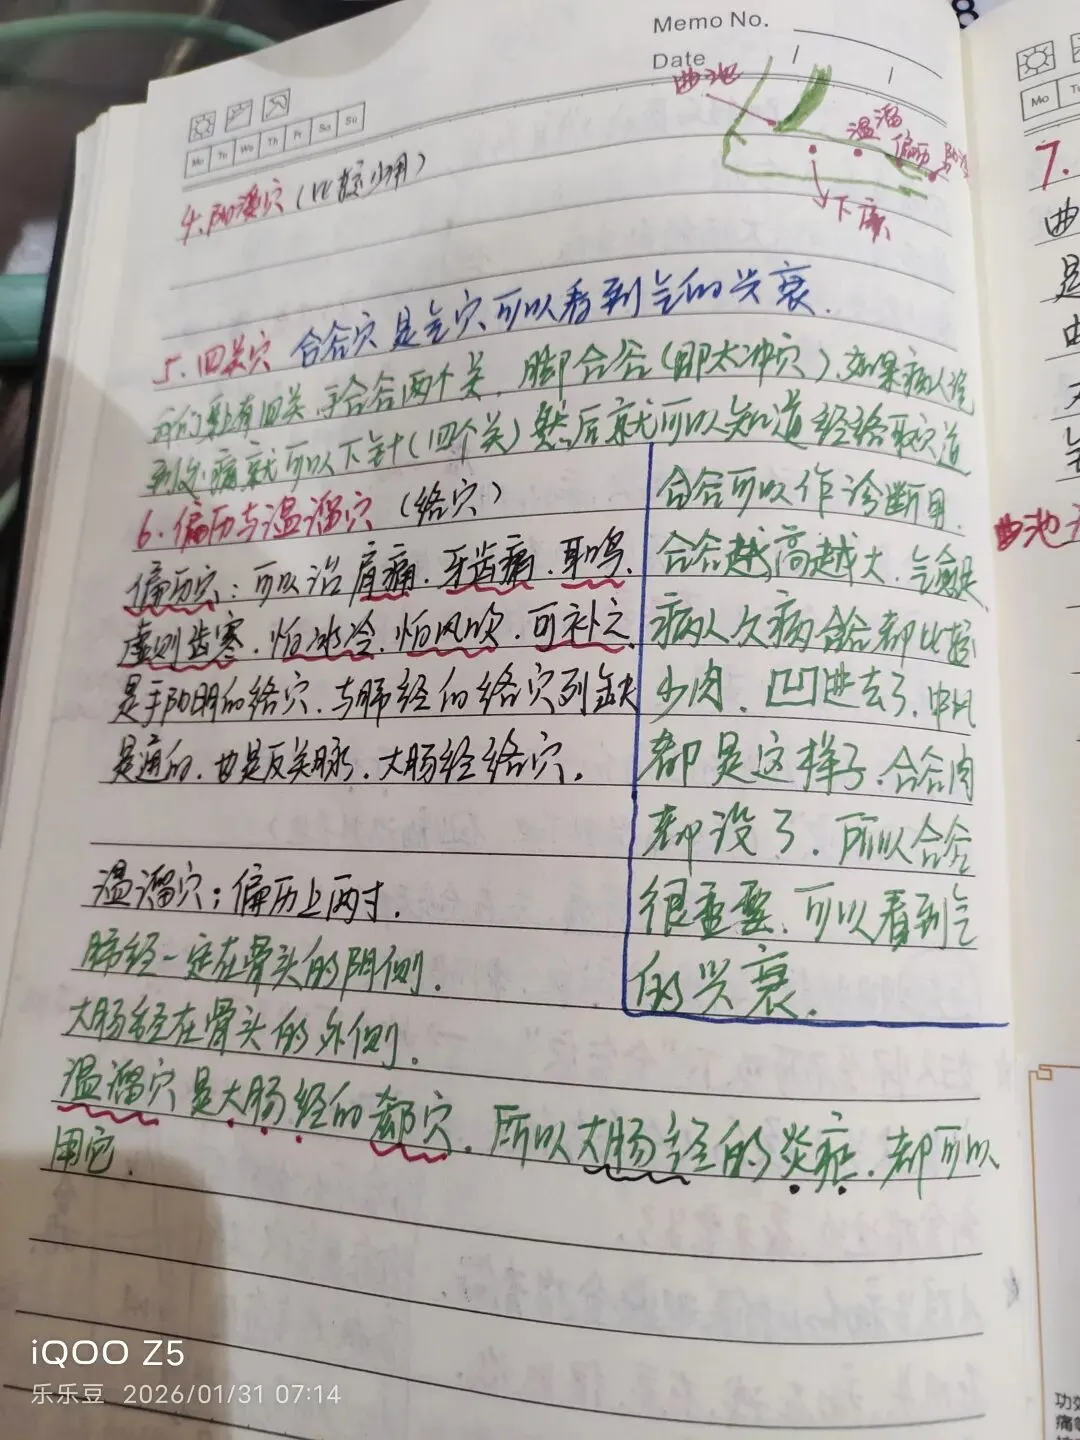 Memo No.
Date
Mo Tu We Th Fr Sa Su
曲池
温溜
偏历
下廉
4.阳溪穴（比较少用）
5.四关穴 合谷穴是气穴可以看到气的兴衰.
我们身上有四关,手合谷两个关,脚合谷(即太冲穴).如果病人说
到处痛就可以下针(四个关)然后就可以知道经络
6.偏历与温溜穴（络穴）
偏历穴：可以治肩痛.牙齿痛.耳鸣.
虚则齿寒.怕冰冷.怕风吹.可补之.
是手阳明的络穴.与肺经的络穴列缺
是通的.也是反关脉.大肠经络穴.
合谷可以作诊断用.
合谷越高越大.气愈足.
病人久病合谷都比较
少肉.凹进去了.中风
都是这样子.合谷肉
都没了.所以合谷
很重要.可以看到气
的兴衰.
温溜穴：偏历上两寸.
肺经一定在骨头的阴侧.
大肠经在骨头的外侧.
温溜穴是大肠经的郄穴.所以大肠经的炎症.都可以
用它.
7.
曲
是
曲池
Mo
功效
痛
iQOO Z5
乐乐豆 2026/01/31 07:14